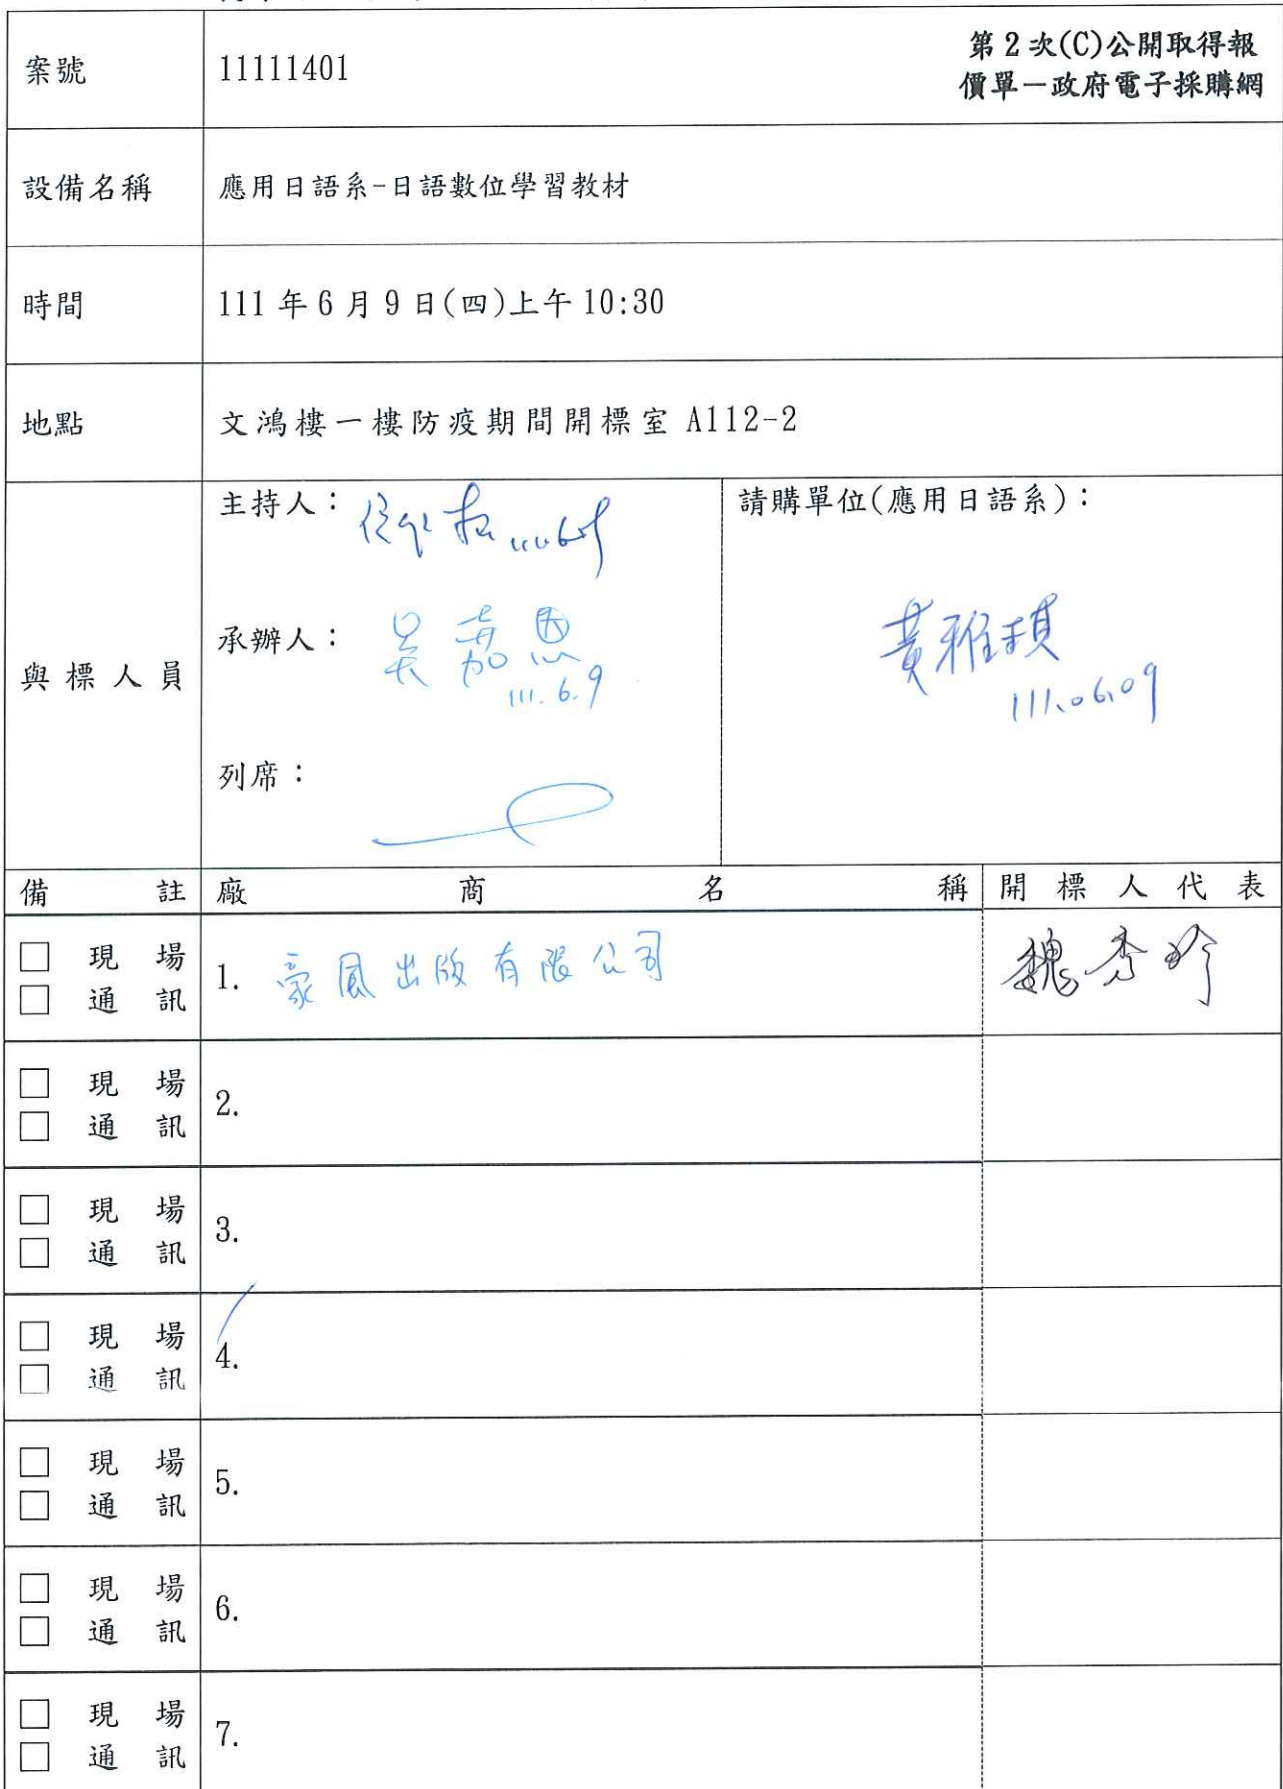 案號
11111401
第2次(C)公開取得報
價單－政府電子採購網
設備名稱
應用日語系-日語數位學習教材
時間
111年6月9日(四)上午10:30
地點
文鴻樓一樓防疫期間開標室 A112-2
與標人員
主持人：
承辦人：吳嘉恩
111.6.9
列席：
請購單位(應用日語系)：
黃雅琪
111.06.09
備註 廠商名稱 開標人代表
□ 現場
□ 通訊
1. 豪風出版有限公司
魏秀玲
□ 現場
□ 通訊
2.
□ 現場
□ 通訊
3.
□ 現場
□ 通訊
4.
□ 現場
□ 通訊
5.
□ 現場
□ 通訊
6.
□ 現場
□ 通訊
7.